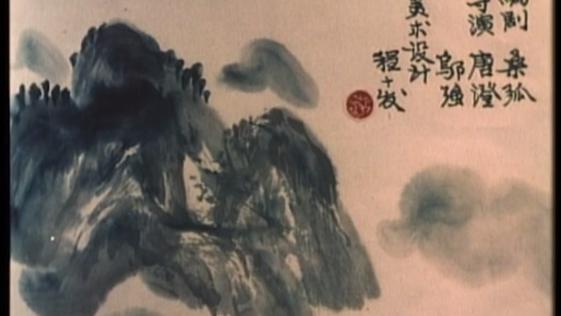 编剧 桑弧
导演 唐澄
邬强
美术设计
程十发